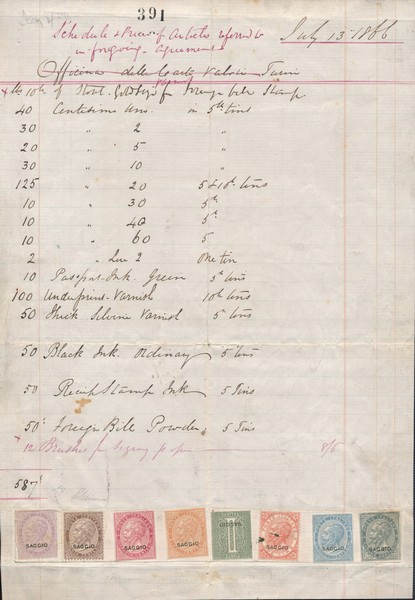 391
Schedule & Price of Articles referred to
in foregoing agreement
July 13 1866
Officina delle Carte Valori Turin
lbs 10 of for Foreign bill Stamp
40 Centesimi Uno in 5lb tins
30 " 2 "
20 " 5 "
30 " 10 "
125 " 20 5 & 10lb tins
10 " 30 5lb
10 " 40 5lb
10 " 60 5
2 " Lire 2 One tin
10 Ink Green 5lb tins
100 Underprint Varnish 10lb tins
50 Thick Varnish 5 tins
50 Black Ink Ordinary 5 tins
50 Receipt Stamp Ink 5 Tins
50 Foreign Bill Powder 5 Tins
12 Brushes for 8/6
587
SAGGIO SAGGIO SAGGIO SAGGIO SAGGIO SAGGIO SAGGIO SAGGIO